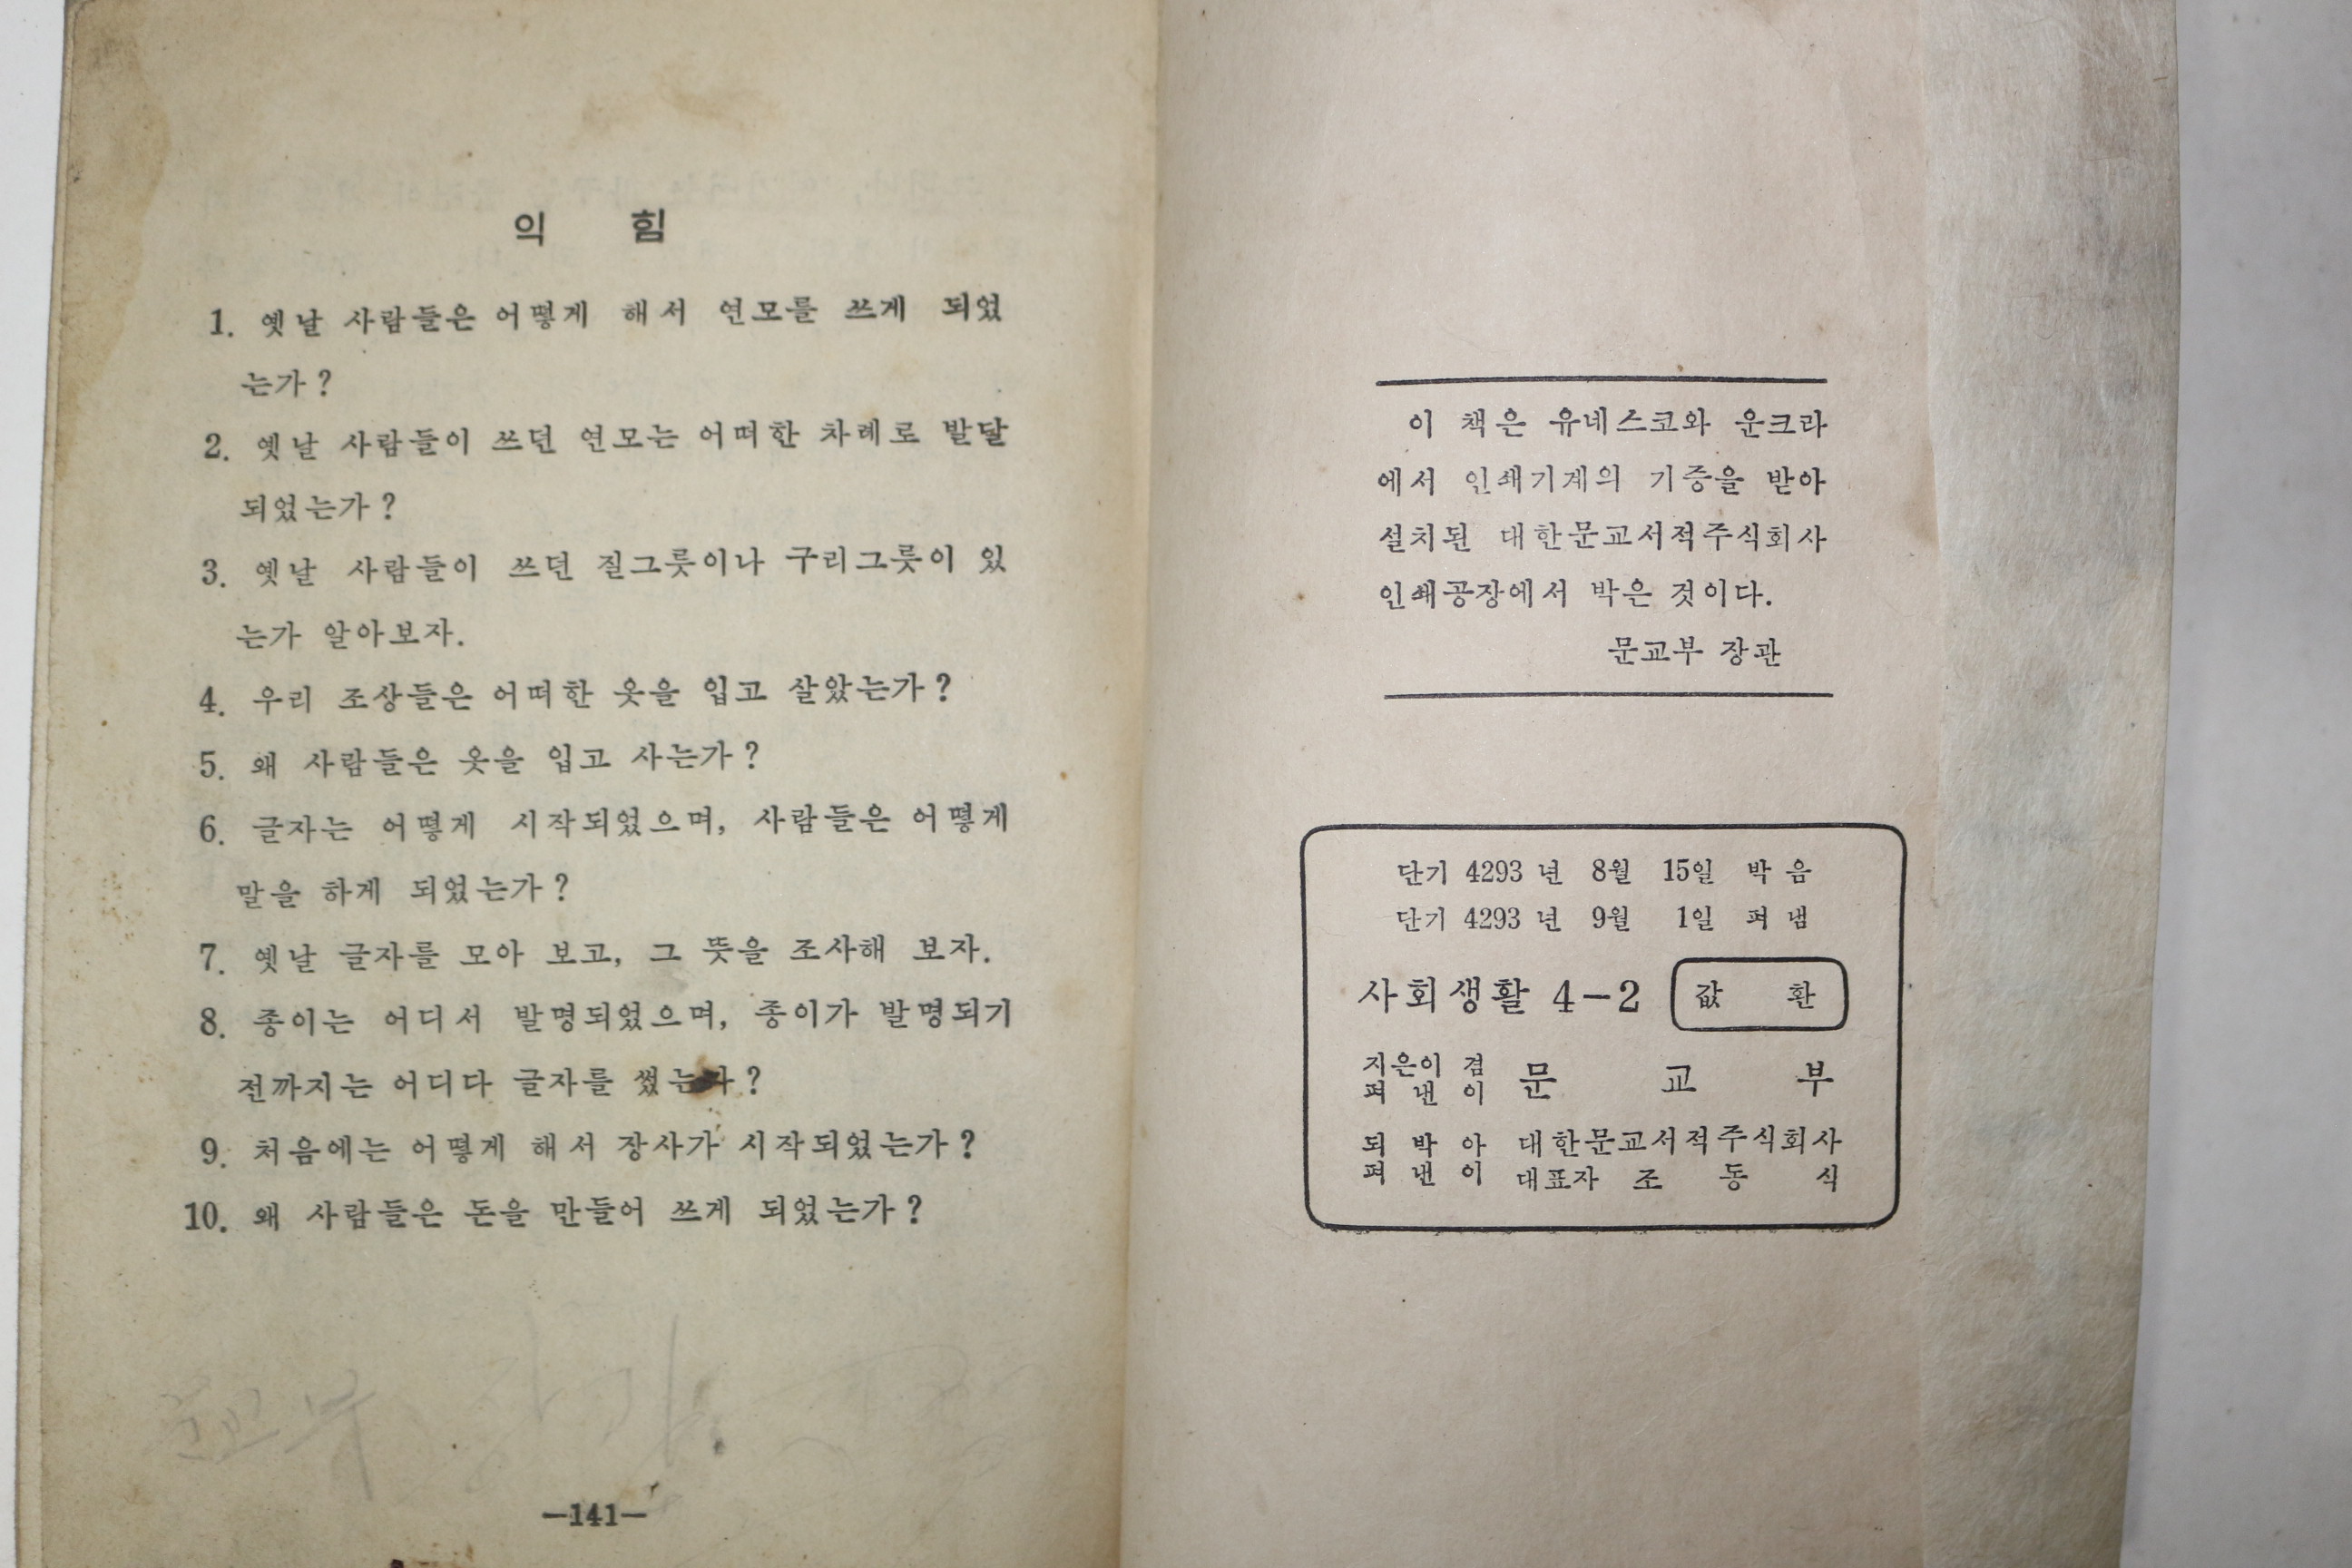 익 힘
1. 옛날 사람들은 어떻게 해서 연모를 쓰게 되었
는가?
2. 옛날 사람들이 쓰던 연모는 어떠한 차례로 발달
되었는가?
3. 옛날 사람들이 쓰던 질그릇이나 구리그릇이 있
는가 알아보자.
4. 우리 조상들은 어떠한 옷을 입고 살았는가?
5. 왜 사람들은 옷을 입고 사는가?
6. 글자는 어떻게 시작되었으며, 사람들은 어떻게
말을 하게 되었는가?
7. 옛날 글자를 모아 보고, 그 뜻을 조사해 보자.
8. 종이는 어디서 발명되었으며, 종이가 발명되기
전까지는 어디다 글자를 썼는가?
9. 처음에는 어떻게 해서 장사가 시작되었는가?
10. 왜 사람들은 돈을 만들어 쓰게 되었는가?
문교부
—141—
이 책은 유네스코와 운크라
에서 인쇄기계의 기증을 받아
설치된 대한문교서적주식회사
인쇄공장에서 박은 것이다.
문교부 장관
단기 4293 년 8월 15일 박 음
단기 4293 년 9월 1일 펴 냄
사회생활 4-2 값 환
지은이 겸
펴 낸 이 문 교 부
되 박 아 대한문교서적주식회사
펴 낸 이 대표자 조 동 식